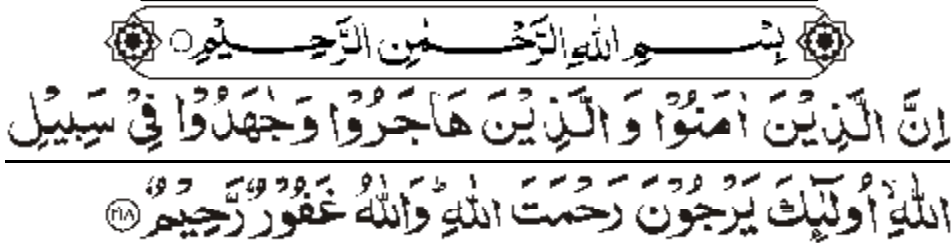 بِسْمِ اللّٰهِ الرَّحْمٰنِ الرَّحِيْمِ
اِنَّ الَّذِيْنَ اٰمَنُوْا وَ الَّذِيْنَ هَاجَرُوْا وَجٰهَدُوْا فِيْ سَبِيْلِ
اللّٰهِ ۙ اُولٰٓئِكَ يَرْجُوْنَ رَحْمَتَ اللّٰهِ ؕ وَاللّٰهُ غَفُوْرٌ رَّحِيْمٌ ﴿۲۱۸﴾